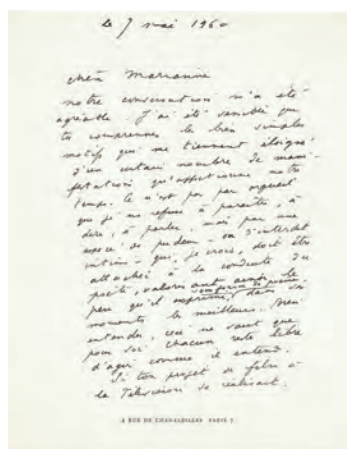 le 7 mai 1960
chère Marianne
notre conversation m'a été
agréable. J'ai été sensible que
tu comprennes les bien simples
motifs qui me tiennent éloigné
d'un certain nombre de mani-
festations qu'affectionne notre
temps. Ce n'est pas par orgueil
que je me refuse à paraître, à
dire, à parler, mais par une
espèce de pudeur - ou d'interdit
intime - qui, je crois, doit être
attaché à la conduite du
poète, valorisant ainsi le
peu qu'il exprime, sous forme de poème, dans ses
moments les meilleurs. Bien
entendu, ceci ne vaut que
pour soi, chacun reste libre
d'agir comme il entend.
Si ton projet de film à
la Télévision se réalisait,
4 RUE DE CHANALEILLES PARIS 7